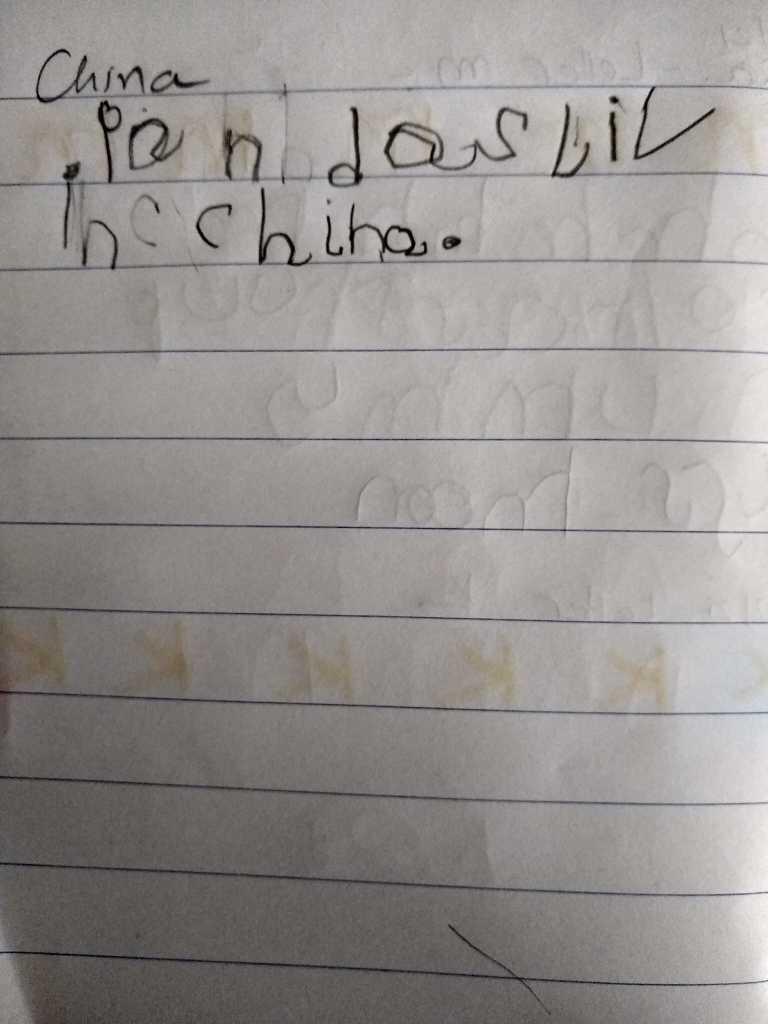 China
.Pan das Liv
in c China.